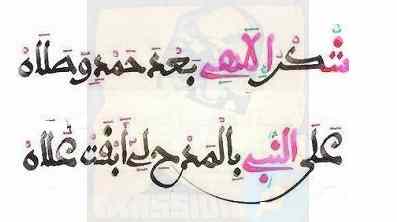 شُكْرُ إِلَهِي بَعْدَ حَمْدِهِ وَصَلَاهْ
عَلَى النَّبِي بِالْمَدْحِ لِي أَبْقَتْ عُلَاهْ